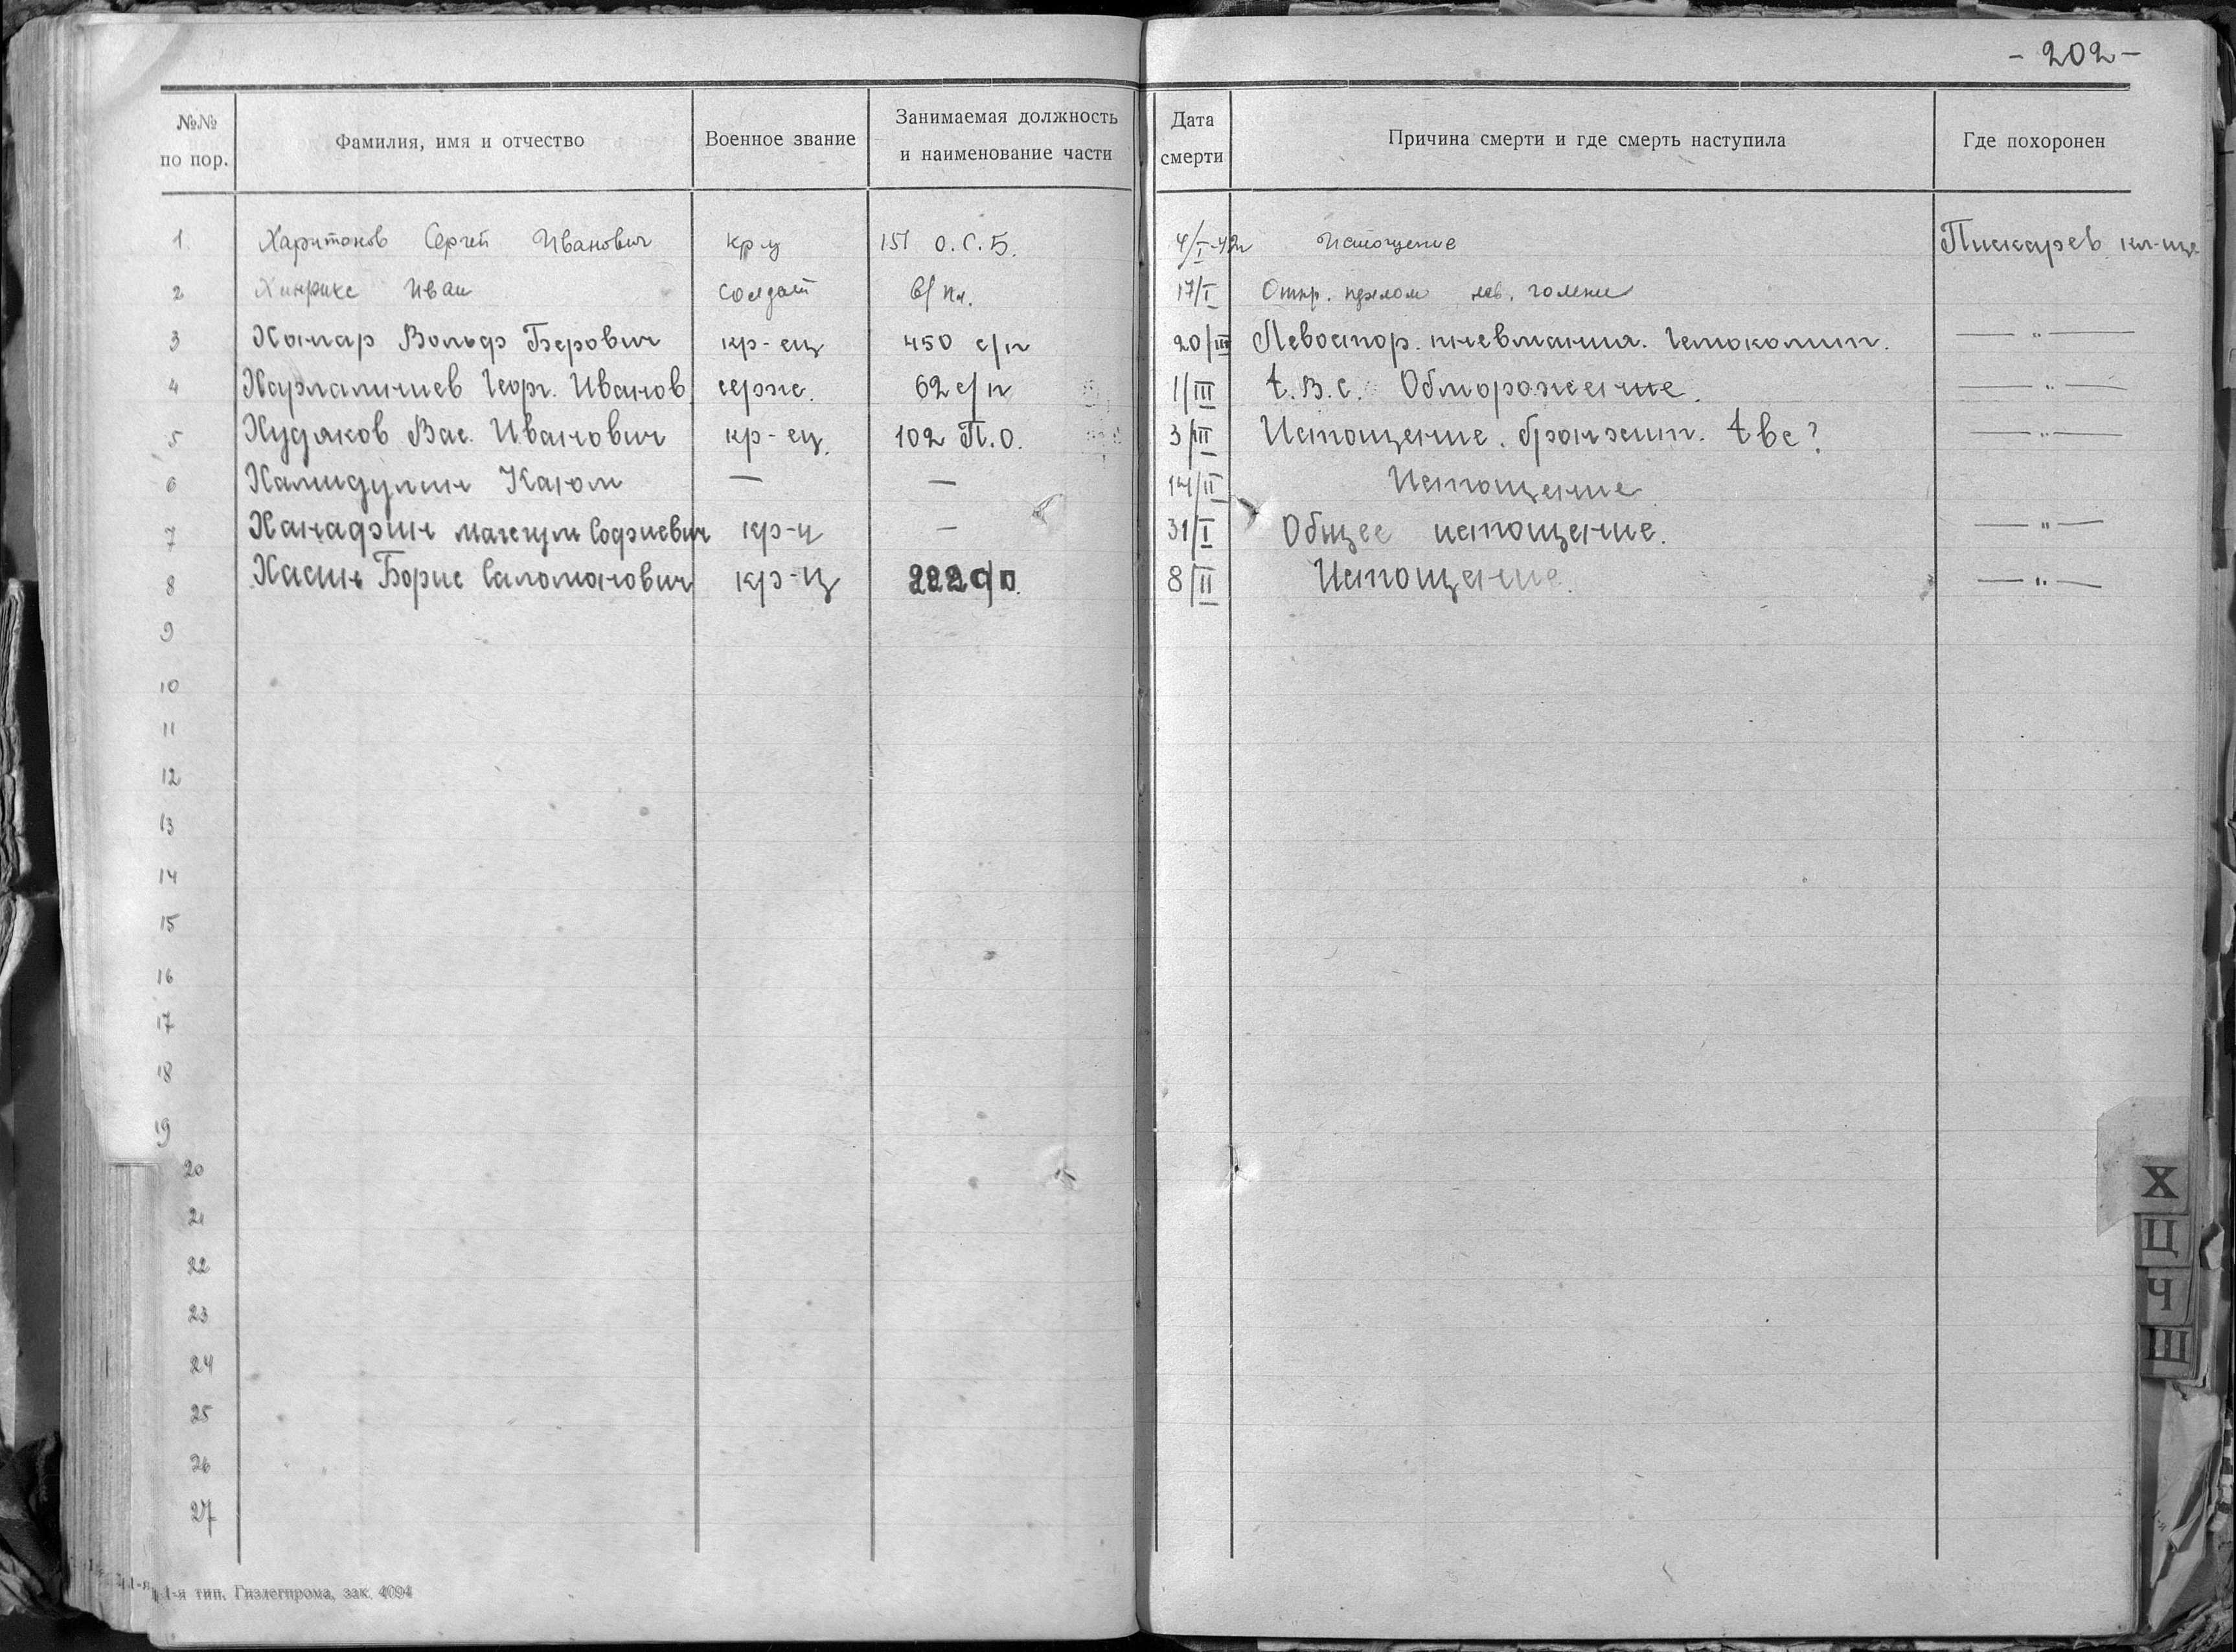 - 202 -
№№ по пор. Фамилия, имя и отчество Военное звание Занимаемая должность и наименование части Дата смерти Причина смерти и где смерть наступила Где похоронен
1 Харитонов Сергей Иванович кр-ц 151 О.С.Б. 4/I-42г Истощение Пискарев. кл-ще
2 Хинрикс Иван солдат в/пл. 17/I Откр. перелом лев. голени
3 Хонар Вольф Берович кр-ец 450 с/п 20/III Левостор. пневмания. Гемоколит. — " —
4 Харлампиев Георг. Иванов. серж. 62 с/п 1/III t.В.с. Обморожение. — " —
5 Худяков Вас. Иванович кр-ец. 102 П.О. 3/III Истощение. бронхит. tвс? — " —
6 Хамидулин Каюм — — 14/II Истощение
7 Ханафин Софиевич кр-ц — 31/I Общее истощение. — " —
8 Хасин Борис Саломонович кр-ц 222 с/п. 8/II Истощение. — " —
9
10
11
12
13
14
15
16
17
18
19
20
21
22
23
24
25
26
27
Х
Ц
Ч
Ш
1-я тип. Гизлегпрома, зак. 4094